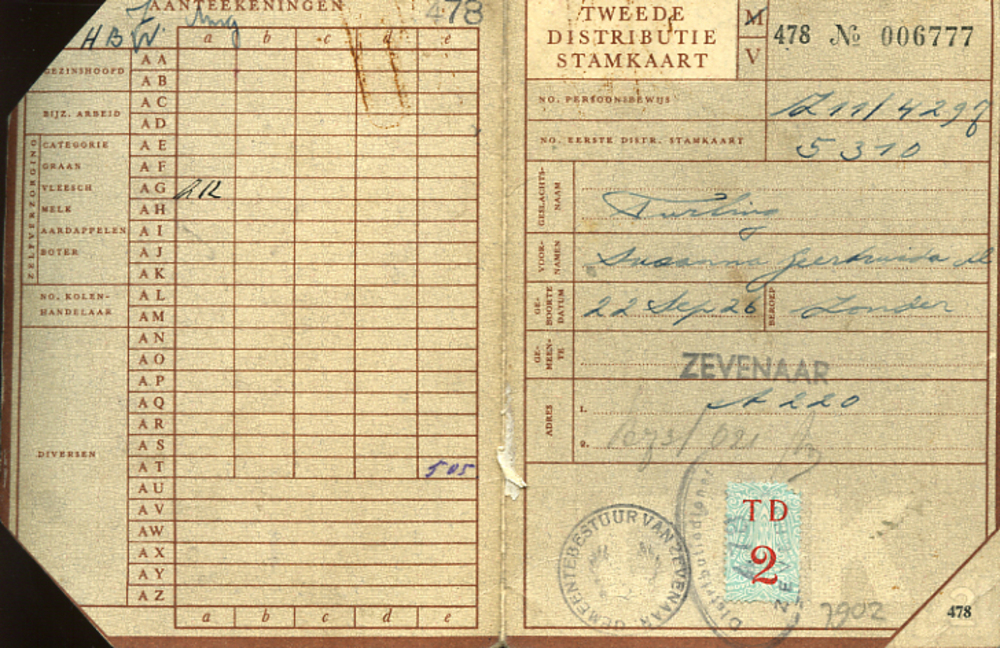 AANTEEKENINGEN 478
HB
a b c d e
GEZINSHOOFD
AA
AB
BIJZ. ARBEID
AC
AD
ZELFVERZORGING
CATEGORIE AE
GRAAN AF
VLEESCH AG
MELK AH
AARDAPPELEN AI
BOTER AJ
AK
NO. KOLEN-
HANDELAAR
AL
AM
AN
AO
AP
AQ
AR
AS
DIVERSEN
AT 505
AU
AV
AW
AX
AY
AZ
a b c d e
TWEEDE
DISTRIBUTIE
STAMKAART
M
V
478 № 006777
NO. PERSOONSBEWIJS
Z11/4298
NO. EERSTE DISTR. STAMKAART
5310
GESLACHTS-
NAAM
Turling
VOOR-
NAMEN
Susanna Geertruida M
GE-
BOORTE
DATUM
22 Sep 26
BEROEP
Zonder
GE-
MEEN-
TE
ZEVENAAR
ADRES
1. A 220
2.
GEMEENTEBESTUUR VAN ZEVENAAR
Distributiedienst
TD
2
7902
478